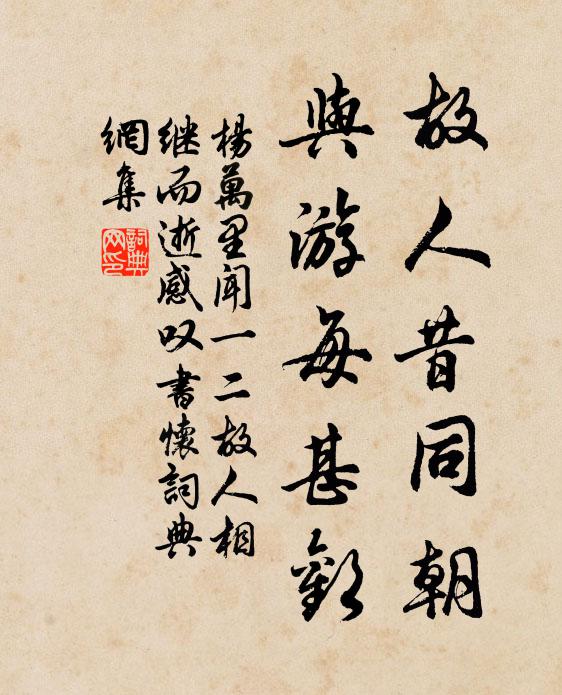 故人昔同朝
與游每甚歡
楊萬里聞一二故人相
继而逝感叹書懷詞典
網集
詞典
网印